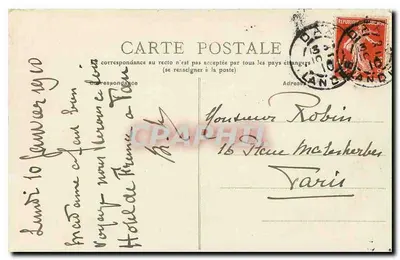 CARTE POSTALE
La correspondance au recto n'est pas acceptée par tous les pays étrangers
(se renseigner à la poste)
Correspondance
Adresse
Lundi 10 Janvier 1910
Madame a fait bon
voyage nous serons ce soir
Hotel de France a Pau
Monsieur Robin
16 Rue Malesherbes
Paris
DAX
LANDES
CPAPHIL